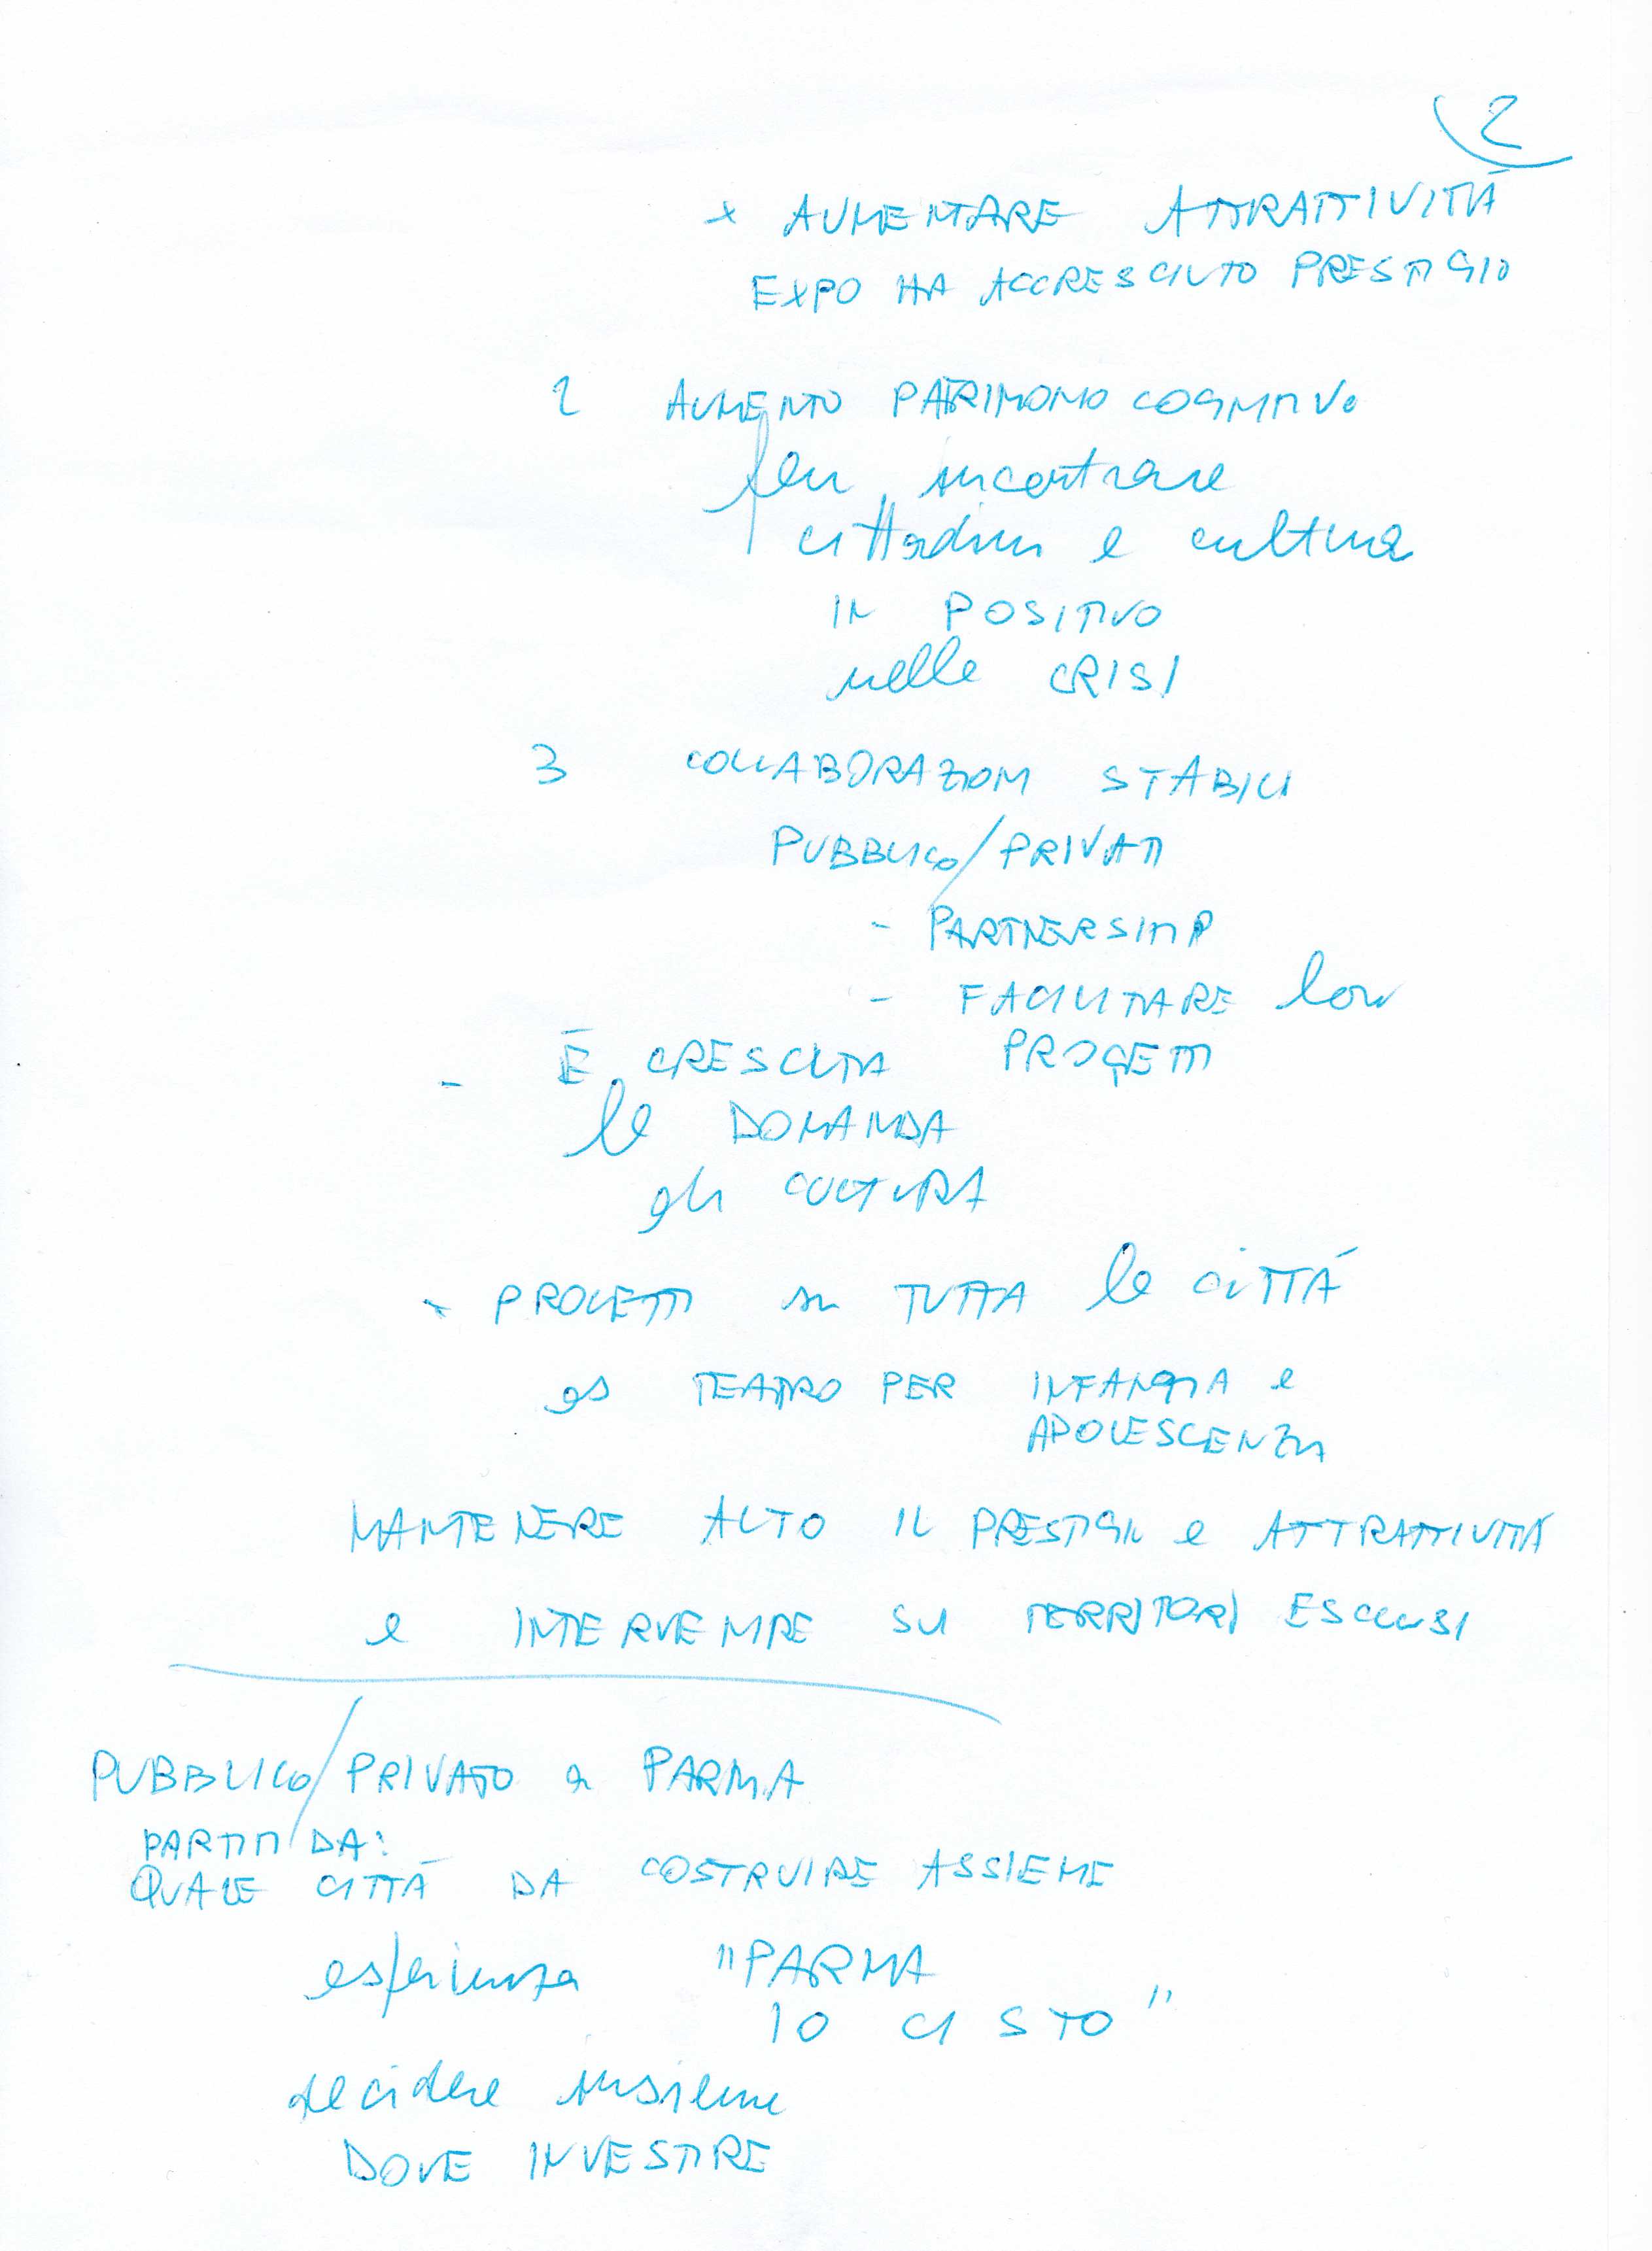 2
x AUMENTARE ATTRATTIVITÀ
EXPO HA ACCRESCIUTO PRESTIGIO
2 AUMENTO PATRIMONIO COGNITIVO
per incontrare
cittadini e cultura
IN POSITIVO
nelle CRISI
3 COLLABORAZIONI STABILI
PUBBLICO/PRIVATI
- PARTNERSIHIP
- FACILITARE loro
PROGETTI
- È CRESCIUTA
la DOMANDA
di CULTURA
- PROGETTI su TUTTA la CITTÀ
es TEATRO PER INFANZIA e
ADOLESCENZA
MANTENERE ALTO IL PRESTIGIO e ATTRATTIVITÀ
e INTERVENIRE SU TERRITORI ESCLUSI
PUBBLICO/PRIVATO a PARMA
PARTITI DA:
QUALE CITTÀ DA COSTRUIRE ASSIEME
esperienza "PARMA
IO CI STO"
decidere insieme
DOVE INVESTIRE